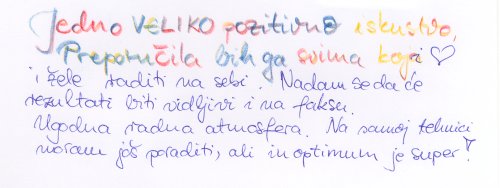 Jedno VELIKO pozitivno iskustvo,
Preporučila bih ga svima koji ♡
i žele raditi na sebi. Nadam se da će
rezultati biti vidljivi i na faksu.
Ugodna radna atmosfera. Na samoj tehnici
moram još poraditi, ali in optimum je super!